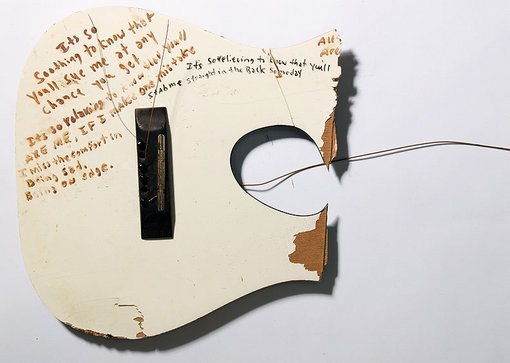 Its so
Soothing to know that
Youll Sue me at any
chance you Get.
Its so relaxing to know youll
ARE ME, IF I make one mistake
I miss the comfort in
Being Sad.
Being on edge.
It's so relieving to know that youll
stab me straight in the Back Someday
All
Are